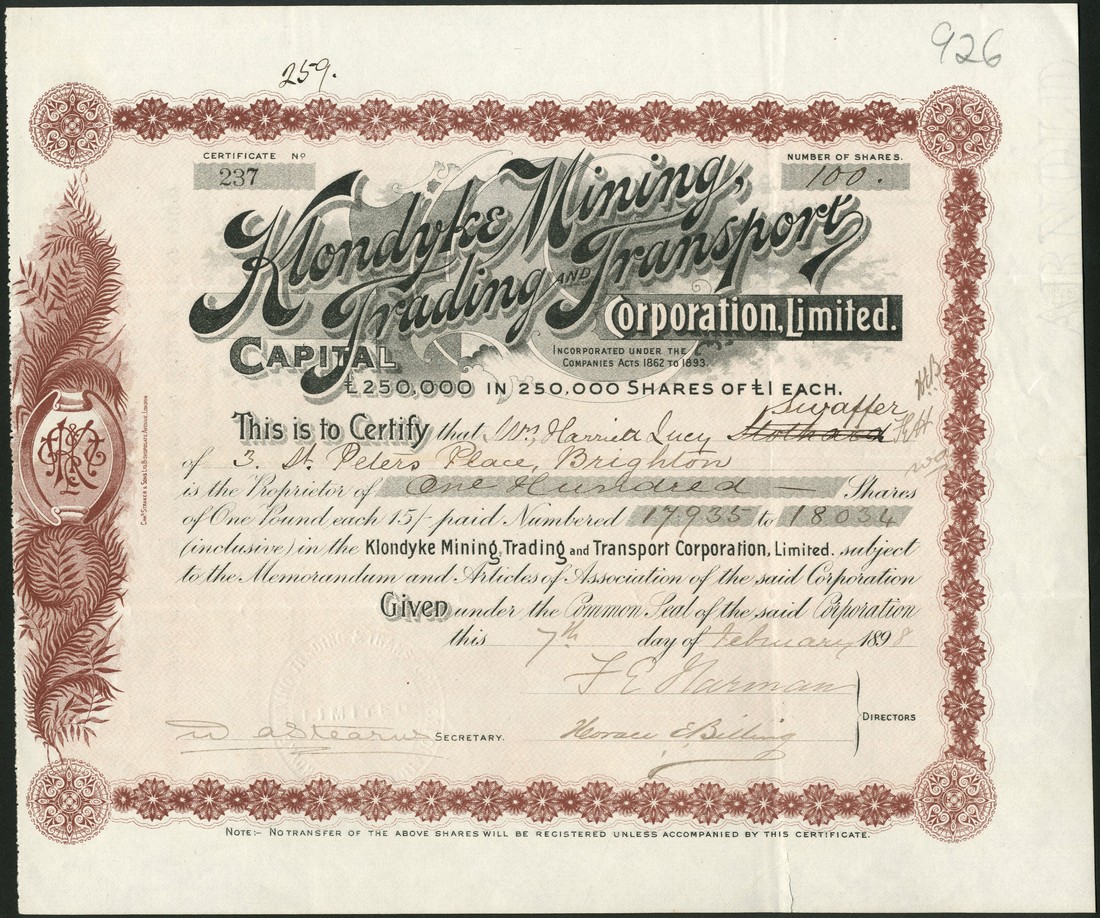 926
259.
CERTIFICATE Nº
237
NUMBER OF SHARES.
100.
Klondyke Mining,
Trading AND Transport
Corporation, Limited.
CAPITAL
INCORPORATED UNDER THE
COMPANIES ACTS 1862 TO 1893.
£250,000 IN 250,000 SHARES OF £1 EACH.
Swaffer
This is to Certify that Mrs Harriett Lucy
of 3. St. Peters Place, Brighton
is the Proprietor of One Hundred — Shares
of One Pound each 15/- paid Numbered 17935 to 18034
(inclusive) in the Klondyke Mining, Trading and Transport Corporation, Limited. subject
to the Memorandum and Articles of Association of the said Corporation
Given under the Common Seal of the said Corporation
this 7th day of February 1898
F E Harman
DIRECTORS
SECRETARY.
Horace E Billing
LIMITED
NOTE:- NO TRANSFER OF THE ABOVE SHARES WILL BE REGISTERED UNLESS ACCOMPANIED BY THIS CERTIFICATE.